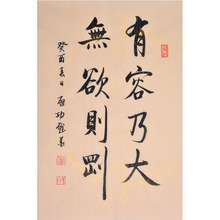 有容乃大
無欲則剛
癸酉春日 啟功雖篆